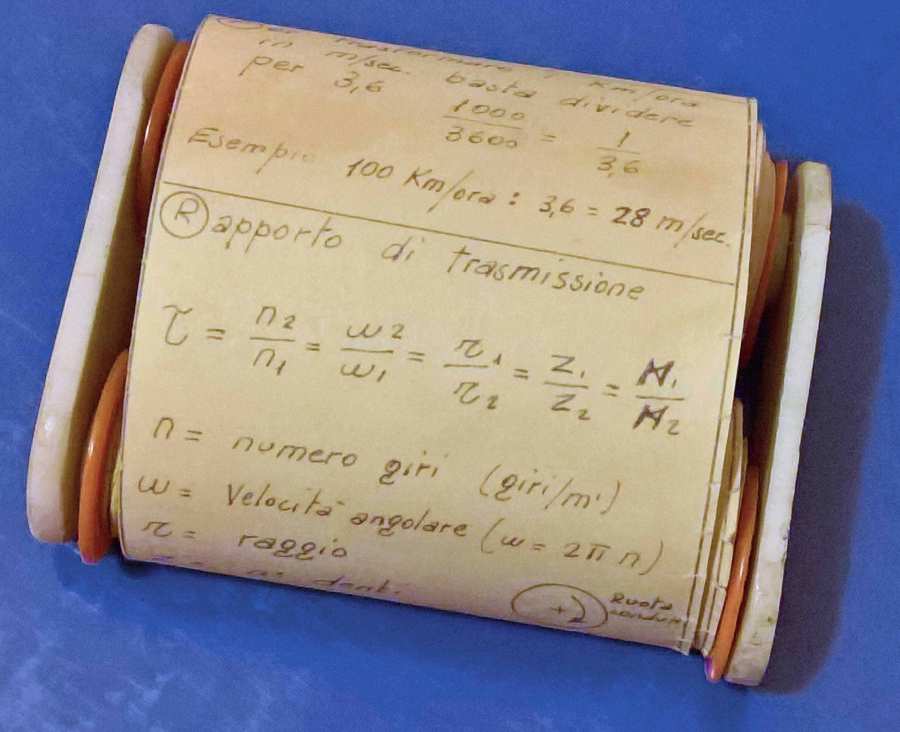 trasformare i Km/ora
in m/sec. basta dividere
per 3,6
1000/3600 = 1/3,6
Esempio 100 Km/ora : 3,6 = 28 m/sec.
Rapporto di trasmissione
τ = n2/n1 = ω2/ω1 = r1/r2 = Z1/Z2 = M1/M2
n = numero giri (giri/m')
ω = Velocità angolare (ω = 2πn)
r = raggio
denti
+2 Ruota